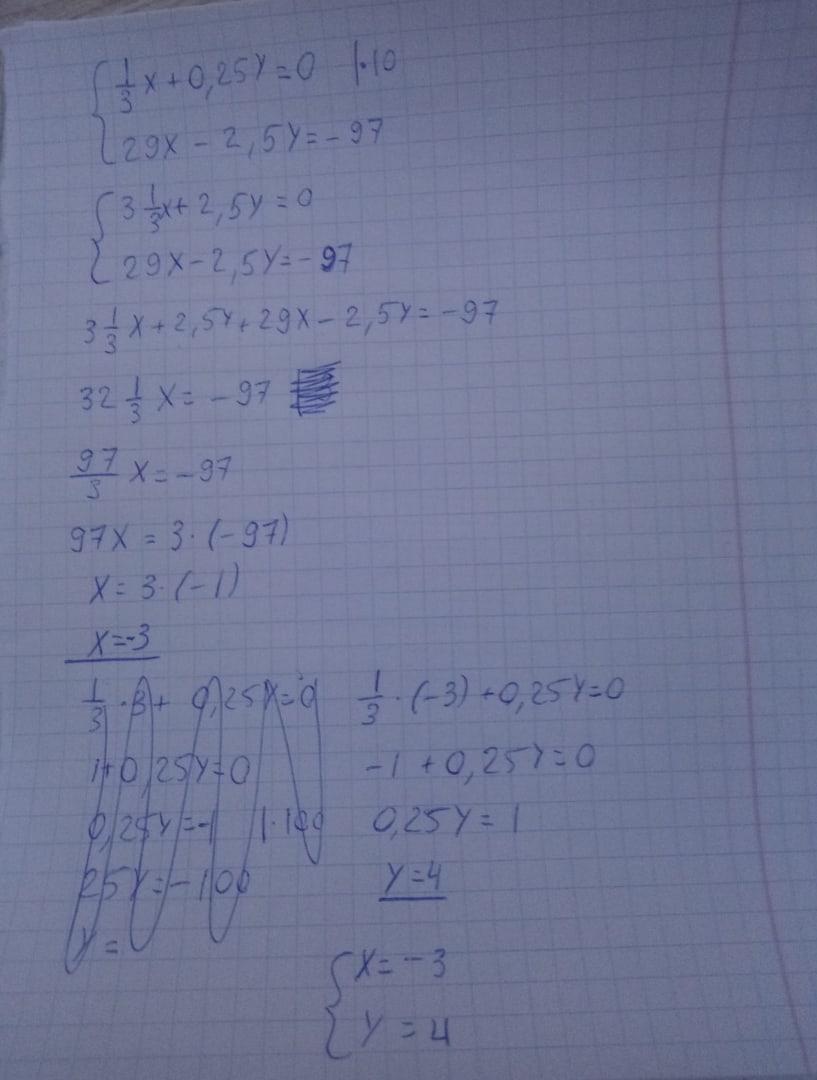 1/3 x + 0,25y = 0 |·10
29x − 2,5y = −97
3 1/3 x + 2,5y = 0
29x − 2,5y = −97
3 1/3 x + 2,5y + 29x − 2,5y = −97
32 1/3 x = −97
97/3 x = −97
97x = 3·(−97)
x = 3·(−1)
x = −3
1/3 · 3 + 0,25y = 0
1 + 0,25y = 0
0,25y = −1 |·100
25y = −100
y =
1/3 · (−3) + 0,25y = 0
−1 + 0,25y = 0
0,25y = 1
y = 4
x = −3
y = 4